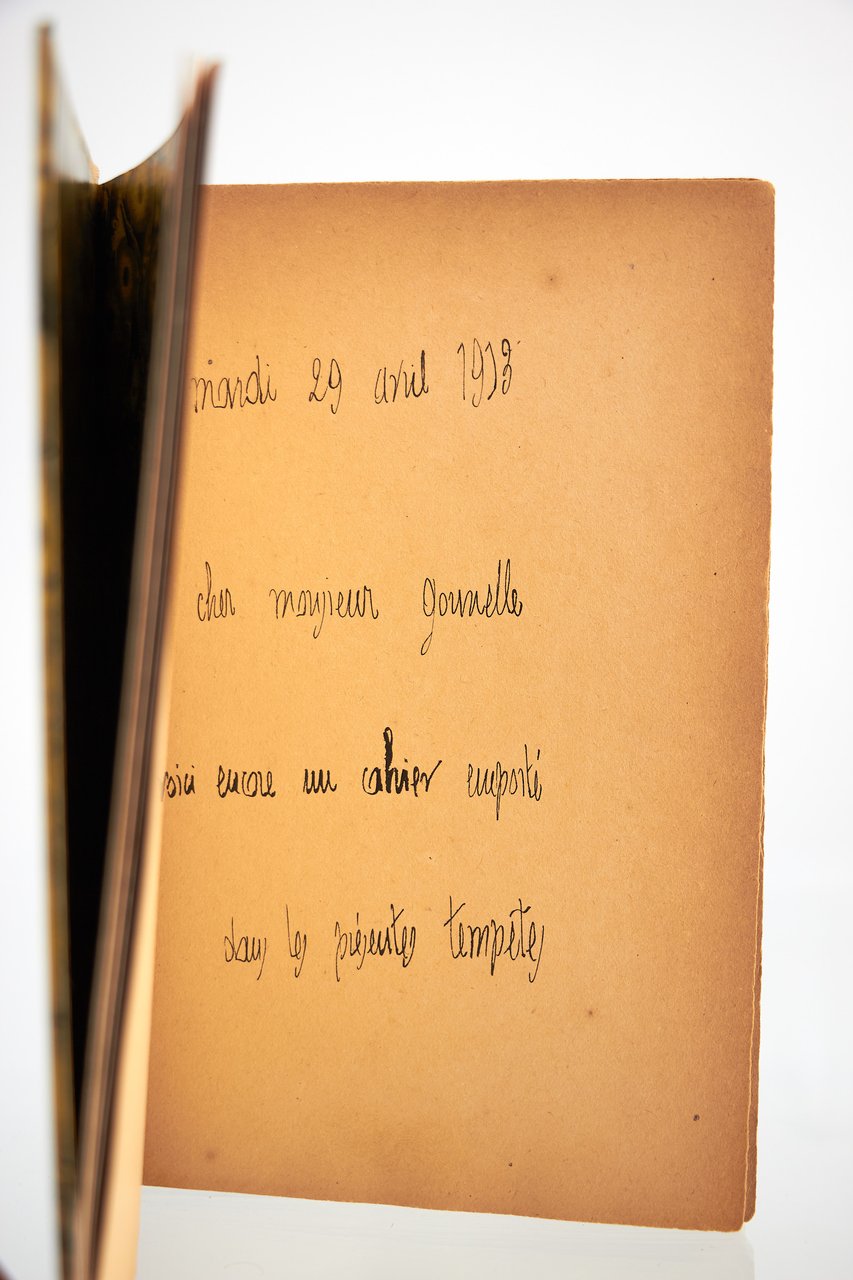 mardi 29 avril 1913
cher monsieur Gounelle
voici encore un cahier emporté
dans les présentes tempêtes